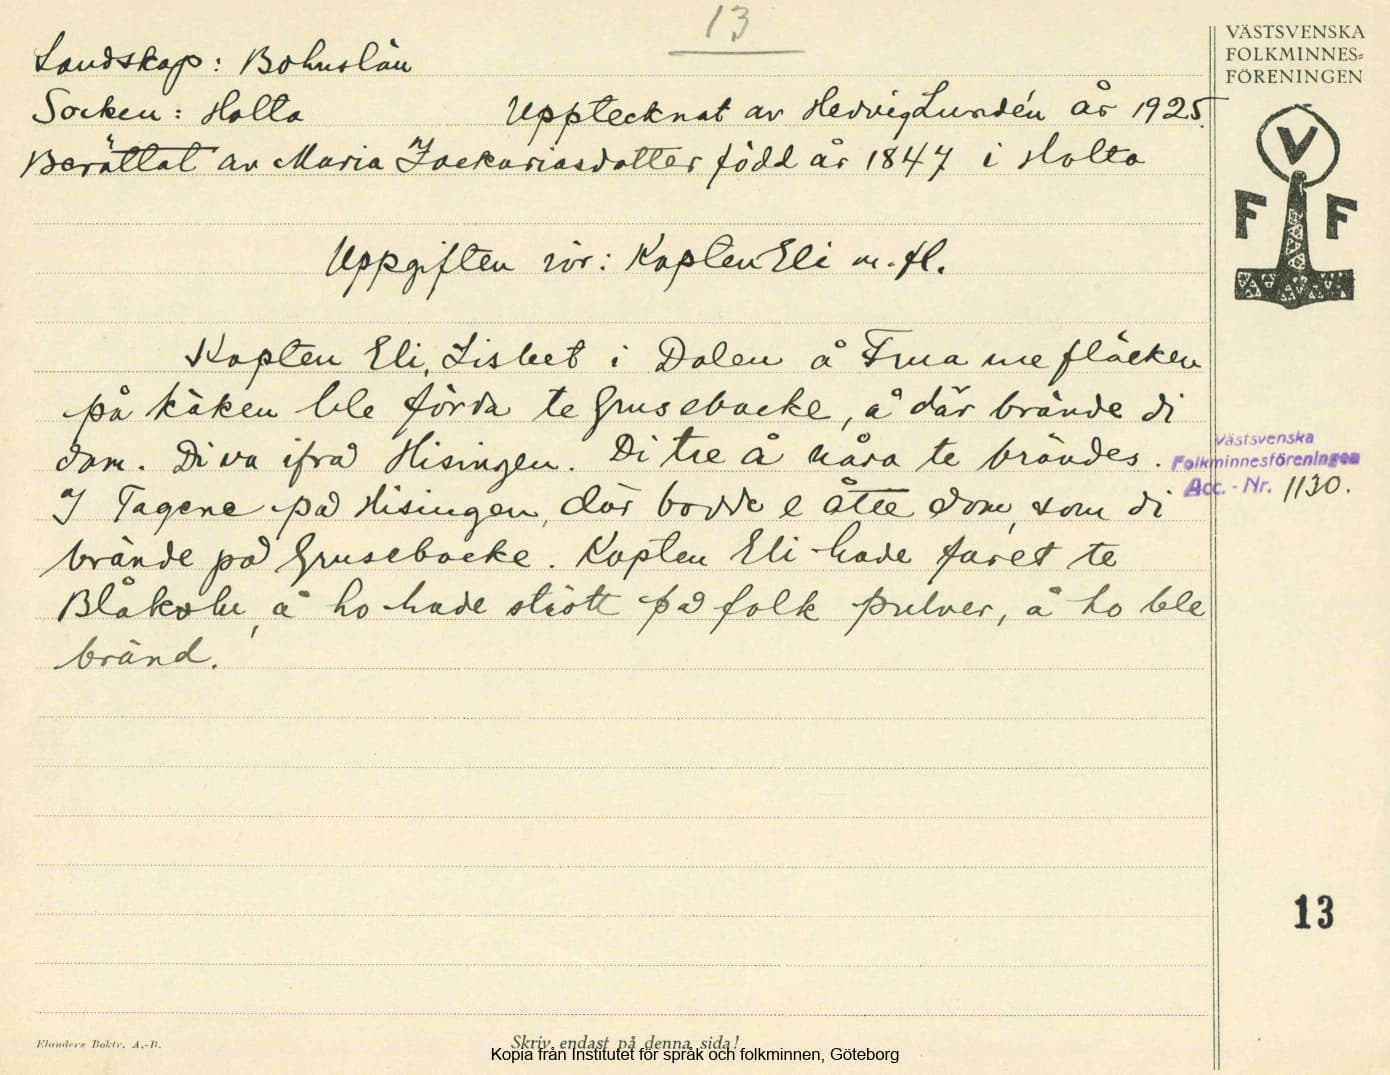 13
VÄSTSVENSKA
FOLKMINNES=
FÖRENINGEN
V
F F
Landskap: Bohuslän
Socken: Holta Upptecknat av Hedvig Lundén år 1925.
Berättat av Maria Zackariasdotter född år 1847 i Holta
Uppgiften rör: Kapten Eli m. fl.
Kapten Eli, Lisbet i Dalen å Frua me fläcken
på käken ble förda te Grusebacke, å där brände di
dom. Di va ifrå Hisingen. Di tre å våra te brändes.
Västsvenska
Folkminnesföreningen
Acc. - Nr. 1130.
I Tagene på Hisingen, där bodde e ätte dom, som di
brände på Grusebacke. Kapten Eli hade faret te
Blåkolu, å ho hade strött på folk pulver, å ho ble
bränd.
13
Elanders Boktr. A.-B.
Skriv endast på denna sida!
Kopia från Institutet för språk och folkminnen, Göteborg